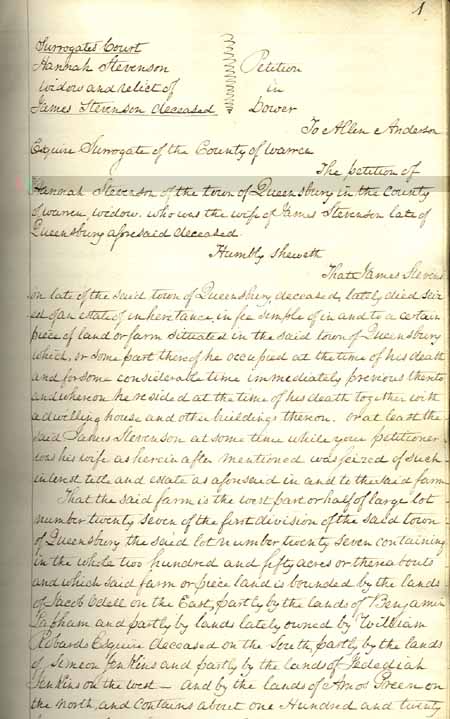 1
Surrogates Court
Hannah Stevenson
widow and relict of
James Stevenson deceased
Petition
in
Dower
To Allen Anderson
Esquire Surrogate of the County of Warren
The petition of
Hannah Stevenson of the town of Queensbury in the County
of warren, widow, who was the wife of James Stevenson late of
Queensbury aforesaid deceased
Humbly sheweth
That James Stevens
on late of the said town of Queensbury deceased, lately died seiz
ed of an estate of inheretance, in fee simple of in and to a certain
piece of land or farm situated in the said town of Queensbury
which, or some part thereof he occupied at the time of his death
and for some considerable time immediately previous thereto
and whereon he resided at the time of his death together with
a dwelling house and other buildings thereon. or at least the
said James Stevenson at some time while your petitioner
was his wife as herein after mentioned was seized of such
interest title and estate as aforesaid in and to the said farm
That the said farm is the west part or half of large lot
number twenty seven of the first division of the said town
of Queensbury the said lot number twenty seven containing
in the whole two hundred and fifty acres or thereabouts
and which said farm or piece land is bounded by the lands
of Jacob Odell on the East, partly by the lands of Benjamin
Lapham and partly by lands lately owned by William
Robards Esquire deceased on the South, partly by the lands
of Simeon Jenkins and partly by the lands of Jedediah
Jenkins on the west — and by the lands of Amos Green on
the north, and contains about one Hundred and twenty